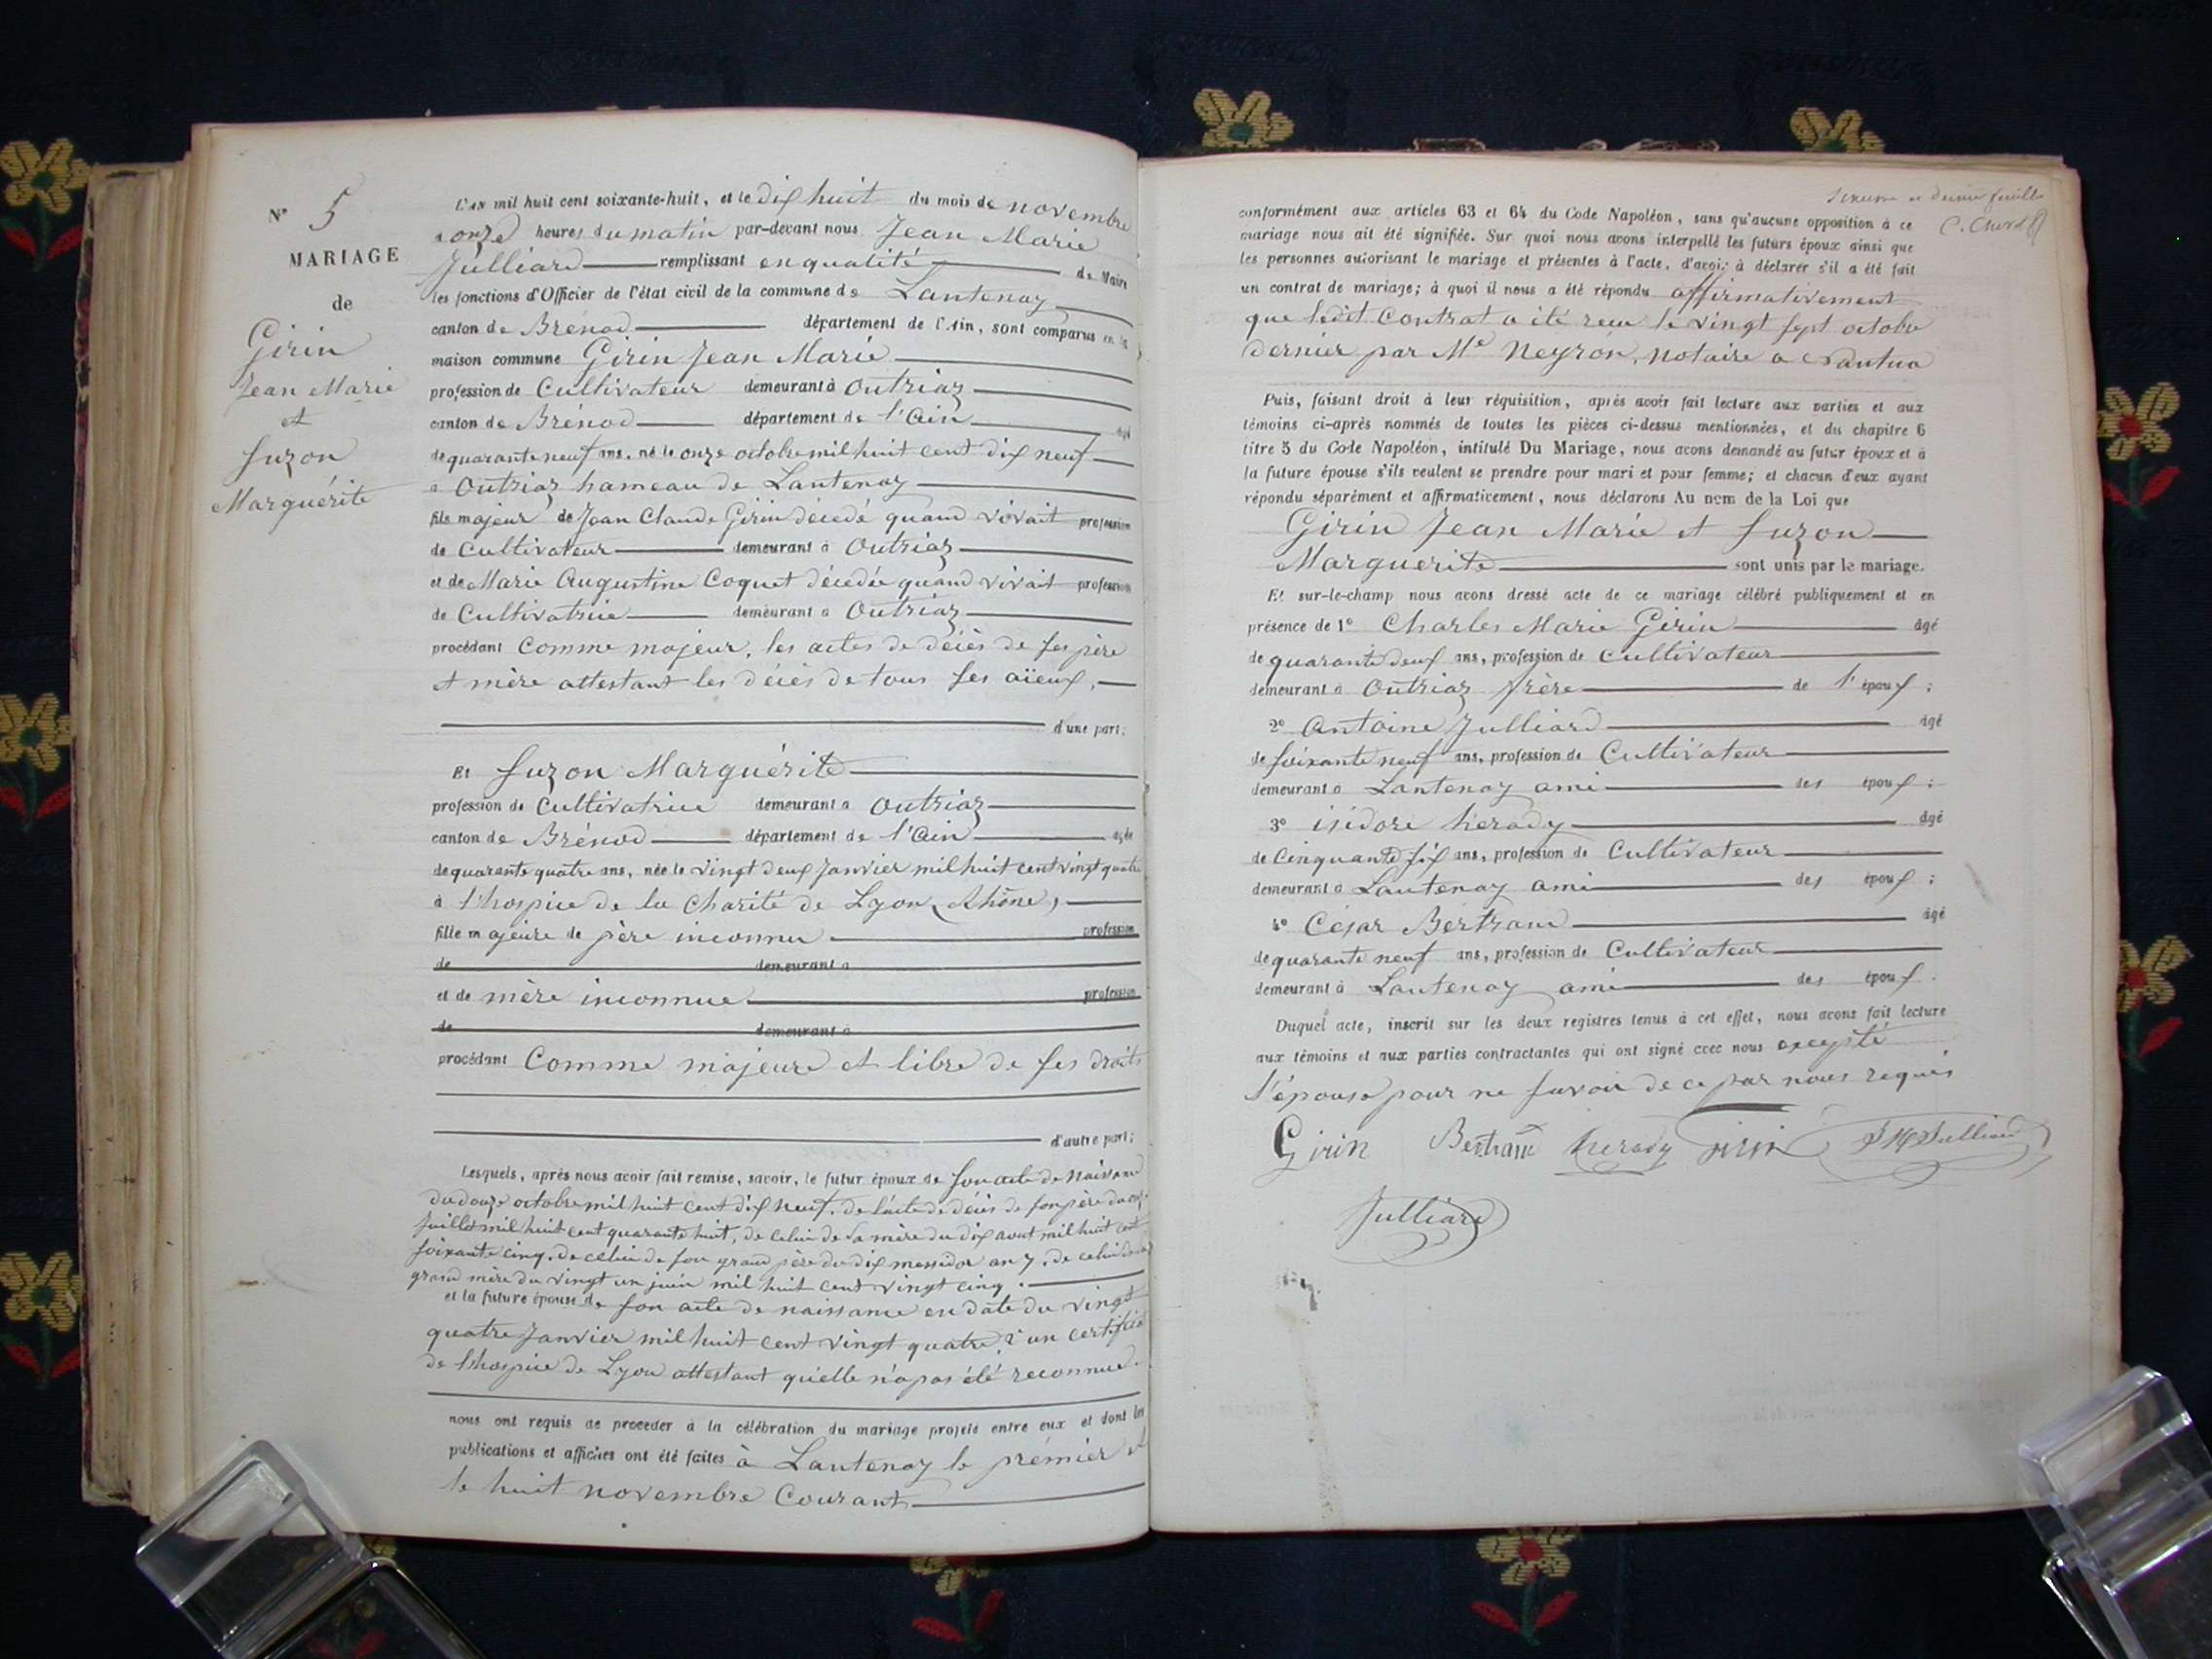 N° 5
MARIAGE
de
Girin
Jean Marie
et
Suzon
Marguérite
L'AN mil huit cent soixante-huit, et le dix huit du mois de novembre
a onze heures du matin par-devant nous Jean Marie
Julliard remplissant en qualité de Maire
les fonctions d'Officier de l'état civil de la commune de Lantenay
canton de Brénod département de l'Ain, sont comparus en la
maison commune Girin Jean Marie
profession de Cultivateur demeurant à Outriaz
canton de Brénod département de l'Ain âgé
de quarante neuf ans, né le onze octobre mil huit cent dix neuf
a Outriaz hameau de Lantenay
fils majeur de Jean Claude Girin décedé quand vivait profession
de Cultivateur demeurant à Outriaz
et de Marie Augustine Coquet décedée quand vivait profession
de Cultivatrice demeurant a Outriaz
procédant Comme majeur, les actes de décès de ses père
et mère attestant les décès de tous ses aïeux,
d'une part;
Et Suzon Marguérite
profession de Cultivatrice demeurant a Outriaz
canton de Brénod département de l'Ain âgée
de quarante quatre ans, née le vingt deux Janvier mil huit cent vingt quatre
à l'hospice de la Charité de Lyon (Rhône)
fille majeure de père inconnu profession
de demeurant a
et de mère inconnue profession
de demeurant à
procédant Comme majeure et libre de ses droits
d'autre part;
Lesquels, après nous avoir fait remise, savoir, le futur époux de son acte de Naissance
du douze octobre mil huit cent dix neuf, de l'acte de décès de son père du
Juillet mil huit cent quarante huit, de celui de sa mère du dix aout mil huit cent
soixante cinq, de celui de son grand père du dix messidor an 7, de celui de sa
grand mère du vingt un juin mil huit cent vingt cinq.
et la future épouse de son acte de naissance en date du vingt
quatre Janvier mil huit cent vingt quatre, d'un certificat
de l'hospice de Lyon attestant qu'elle n'a pas été reconnue.
nous ont requis de proceder à la célébration du mariage projeté entre eux et dont les
publications et affiches ont été faites à Lantenay le prémier et
le huit novembre Courant
dernier feuille
conformément aux articles 63 et 64 du Code Napoléon, sans qu'aucune opposition à ce
mariage nous ait été signifiée. Sur quoi nous avons interpellé les futurs époux ainsi que
les personnes autorisant le mariage et présentes à l'acte, d'avoir à déclarer s'il a été fait
un contrat de mariage; à quoi il nous a été répondu affirmativement
que ledit Contrat a été recu le vingt sept octobre
dernier par Me Neyron, notaire a Nantua
Puis, faisant droit à leur réquisition, après avoir fait lecture aux parties et aux
témoins ci-après nommés de toutes les pièces ci-dessus mentionnées, et du chapitre 6
titre 5 du Code Napoléon, intitulé Du Mariage, nous avons demandé au futur époux et à
la future épouse s'ils veulent se prendre pour mari et pour femme; et chacun d'eux ayant
répondu séparément et affirmativement, nous déclarons Au nom de la Loi que
Girin Jean Marie et Suzon
Marguerite sont unis par le mariage.
Et sur-le-champ nous avons dressé acte de ce mariage célébré publiquement et en
présence de 1° Charles Marie Girin âgé
de quarante deux ans, profession de Cultivateur
demeurant à Outriaz frère de l'époux;
2° Antoine Julliard âgé
de soixante neuf ans, profession de Cultivateur
demeurant a Lantenay ami des époux;
3° isidore herady âgé
de Cinquante six ans, profession de Cultivateur
demeurant à Lantenay ami des époux;
4° César Bertrand âgé
de quarante neuf ans, profession de Cultivateur
demeurant à Lantenay ami des époux.
Duquel acte, inscrit sur les deux registres tenus à cet effet, nous avons fait lecture
aux témoins et aux parties contractantes qui ont signé avec nous excepté
l'épouse pour ne savoir de ce par nous requis
Girin Bertrand herady Girin J M Julliard
Julliard